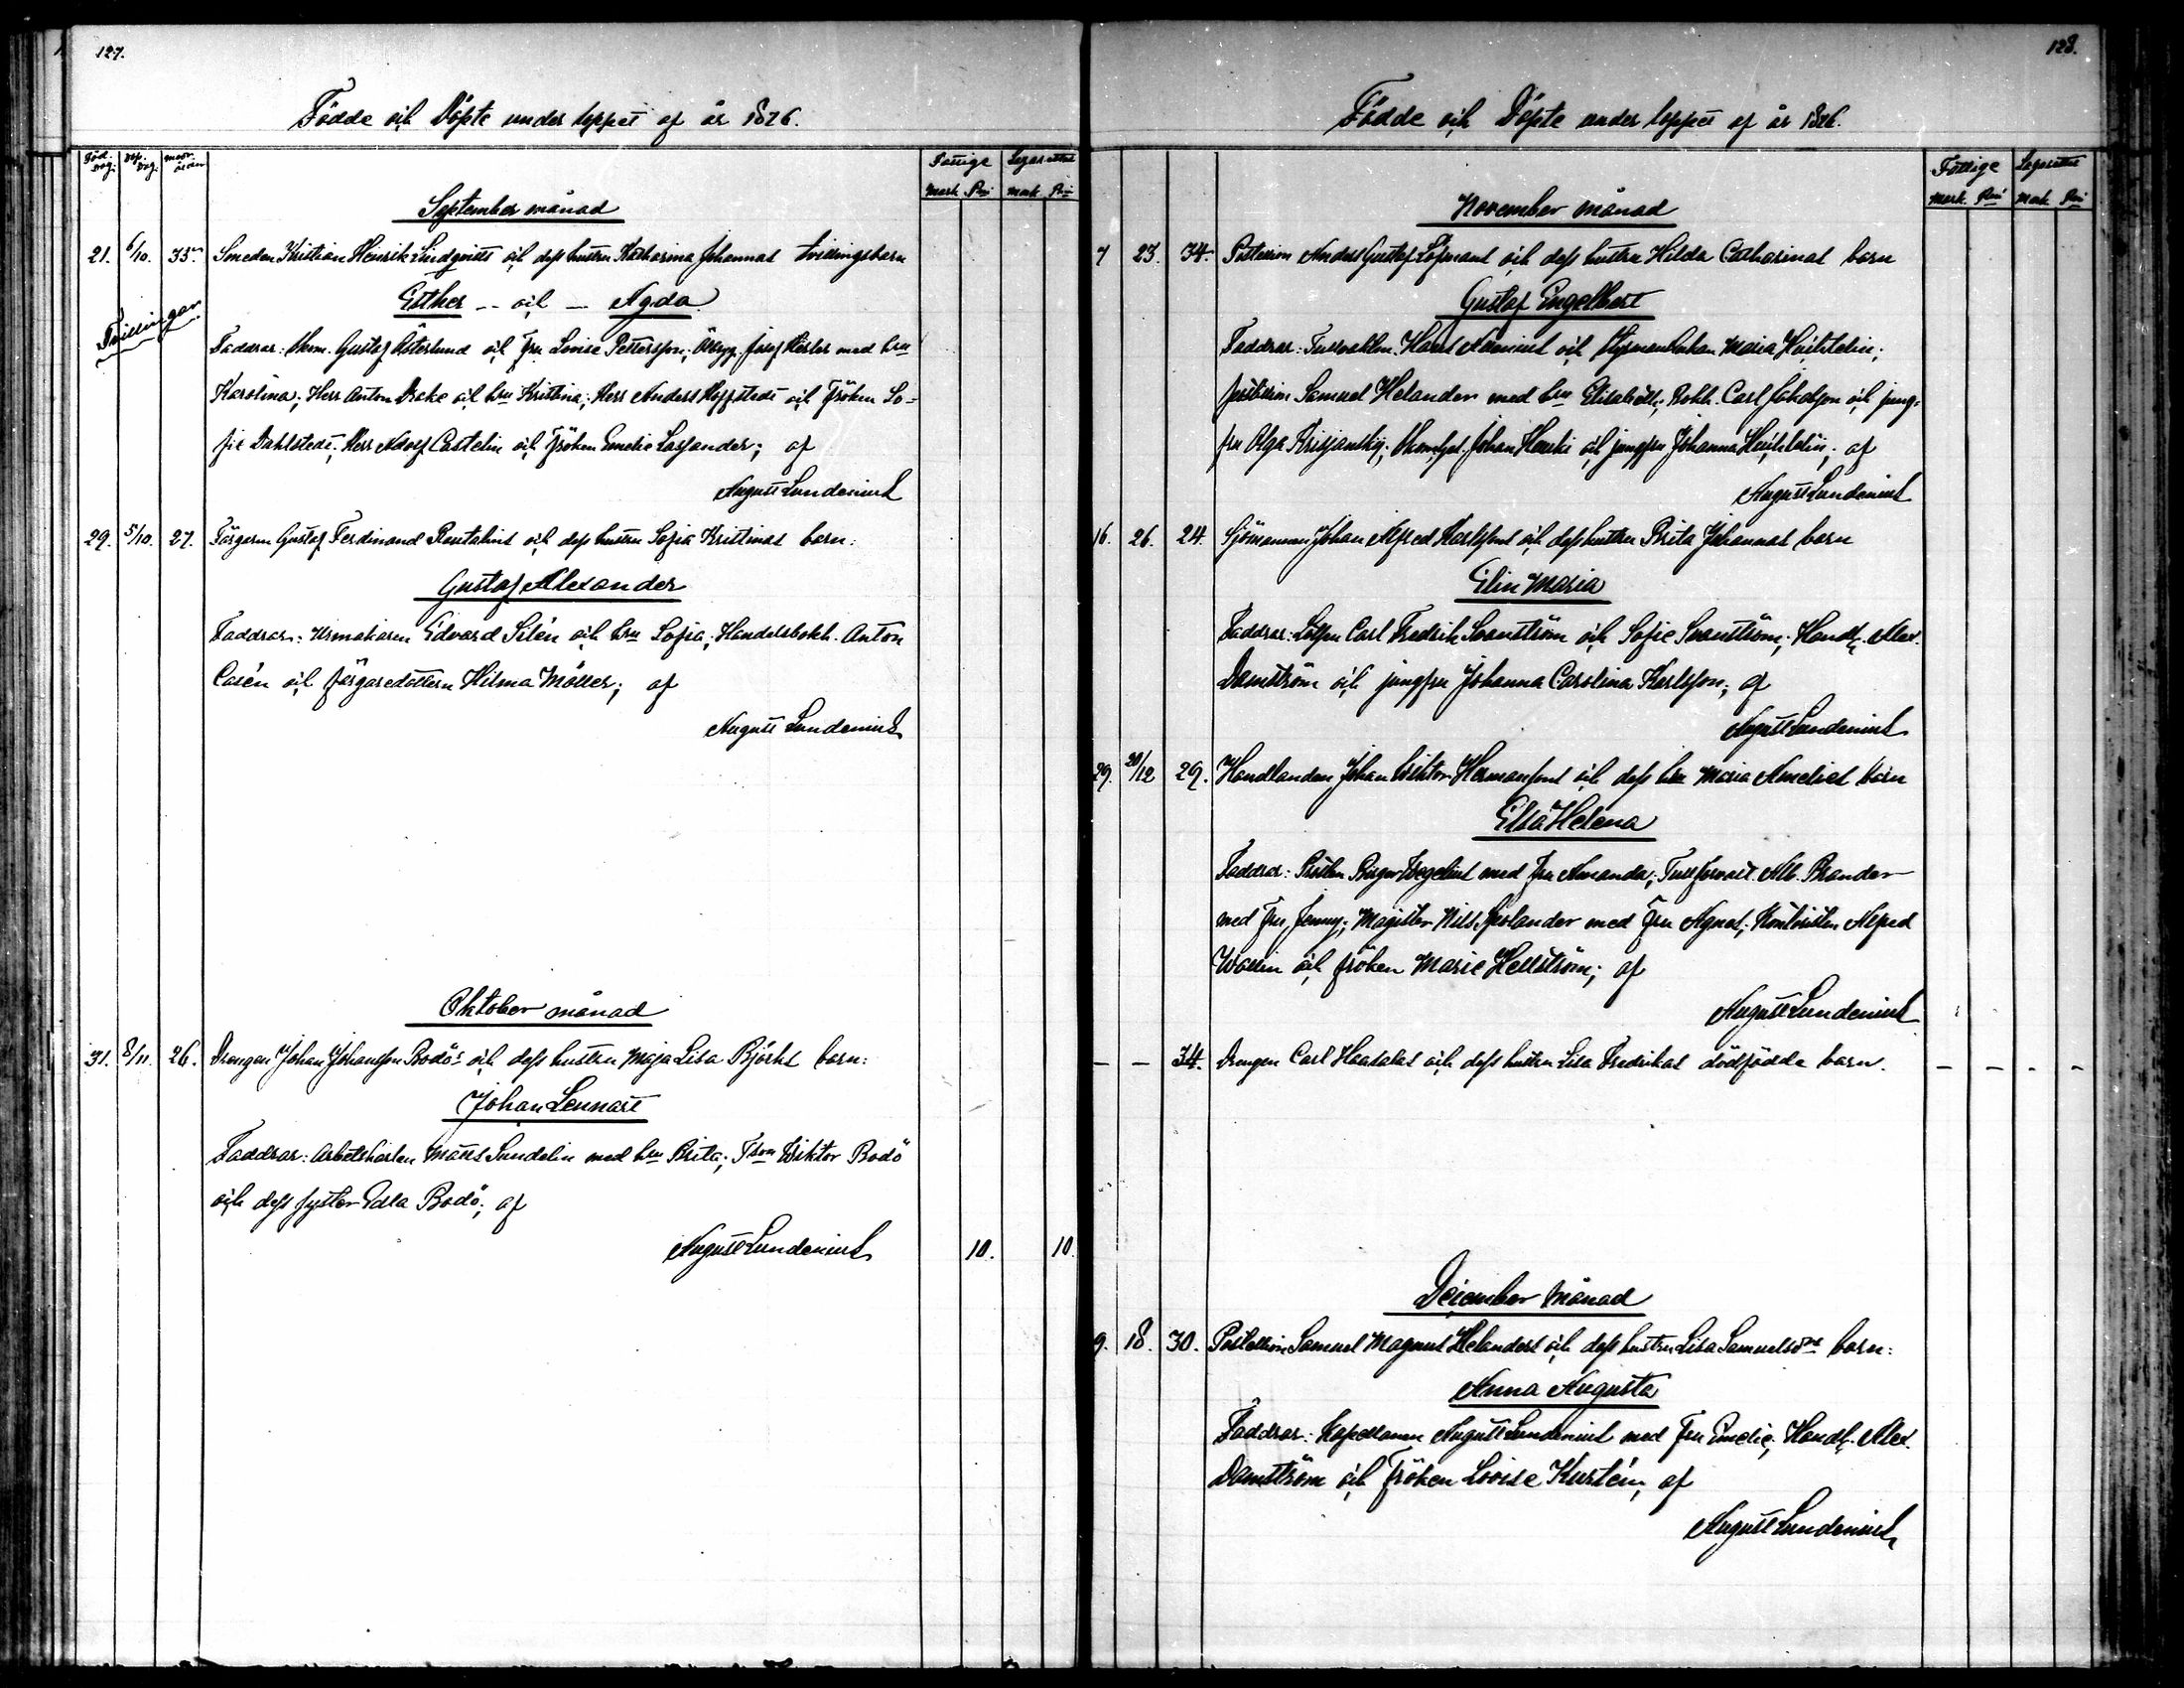 127.
Födde och Döpte under loppet af år 1876.
Föd. dag. Döp. dag. modr. ålder
Fattige Lazarettet
Mark Pni Mark Pni
September månad
21. 6/10. 33. Smeden Kristian Henrik Lindqvists och dess hustru Katharina Johannas tvillingsbarn
Esther -- och -- Agda
Tvillingar
Faddrar: Gustaf Österlund och Fru Lovise Pettersson; Josef med hru
Karolina; Herr Anton Drake och hru Kristina; Herr Anders Hoffstedt och Fröken So-
fie Dahlstedt; Herr Adolf Castelin och Fröken Emelie Lassander; af
August Lundenius
29. 5/10. 27. Färgaren Gustaf Ferdinand Rautalins och dess hustru Sofia Kristinas barn:
Gustaf Alexander
Faddrar: Urmakaren Edvard Silén och hru Sofia; Handelsbokh. Anton
Casén och färgaredottern Hilma Möller; af
August Lundenius
Oktober månad
31. 8/11. 26. Drengen Johan Johansson Bodös och dess hustru Maja Lisa Björks barn:
Johan Lennart
Faddrar: Arbetskarlen Matts Sundelin med hru Brita; Wiktor Bodö
och dess syster Edla Bodö; af
August Lundenius 10. 10.
128.
Födde och Döpte under loppet af år 1876.
Fattige Lazarettet
Mark Pni Mark Pni
November månad
7 23. 34. Postiljon Anders Gustaf Löfmans och dess hustru Hilda Catharinas barn
Gustaf Engelbert
Faddrar: Tullvaktm. Hans och Styrmansenkan Maria
Postiljon Samuel Helander med hru Elisabeth; Bokh. Carl och jung-
fru Olga Johan och jungfru Johanna af
August Lundenius
16. 26. 24. Sjömannen Johan Alfred Karlssons och dess hustru Brita Johannas barn
Elin Maria
Faddrar: Lotsen Carl Fredrik Svanström och Sofie Svanström; Handl. Alex.
Damström och jungfru Johanna Carolina Karlsson; af
August Lundenius
29. 20/12 29. Handlanden Johan Wiktor Hermansons och dess hru Maria Amelies barn
Elsa Helena
Faddrar: Birger Wegelius med fru Amanda; Tullförvalt. Alb. Brander
med Fru Jenny; Magister Nils Spolander med Fru Agnes; Kontoristen Alfred
Wallin och fröken Marie Hellström; af
August Lundenius
— — 34. Drengen Carl Haasalas och dess hustru Lisa Fredrikas dödfödda barn. — — — —
December månad
9. 18. 30. Postiljon Samuel Magnus Helanders och dess hustru Lisa Samuelsdrs barn:
Anna Augusta
Faddrar: Kapellanen August Lundenius med Fru Emelie; Handl. Alex.
Damström och Fröken Lovise Kerstén; af
August Lundenius